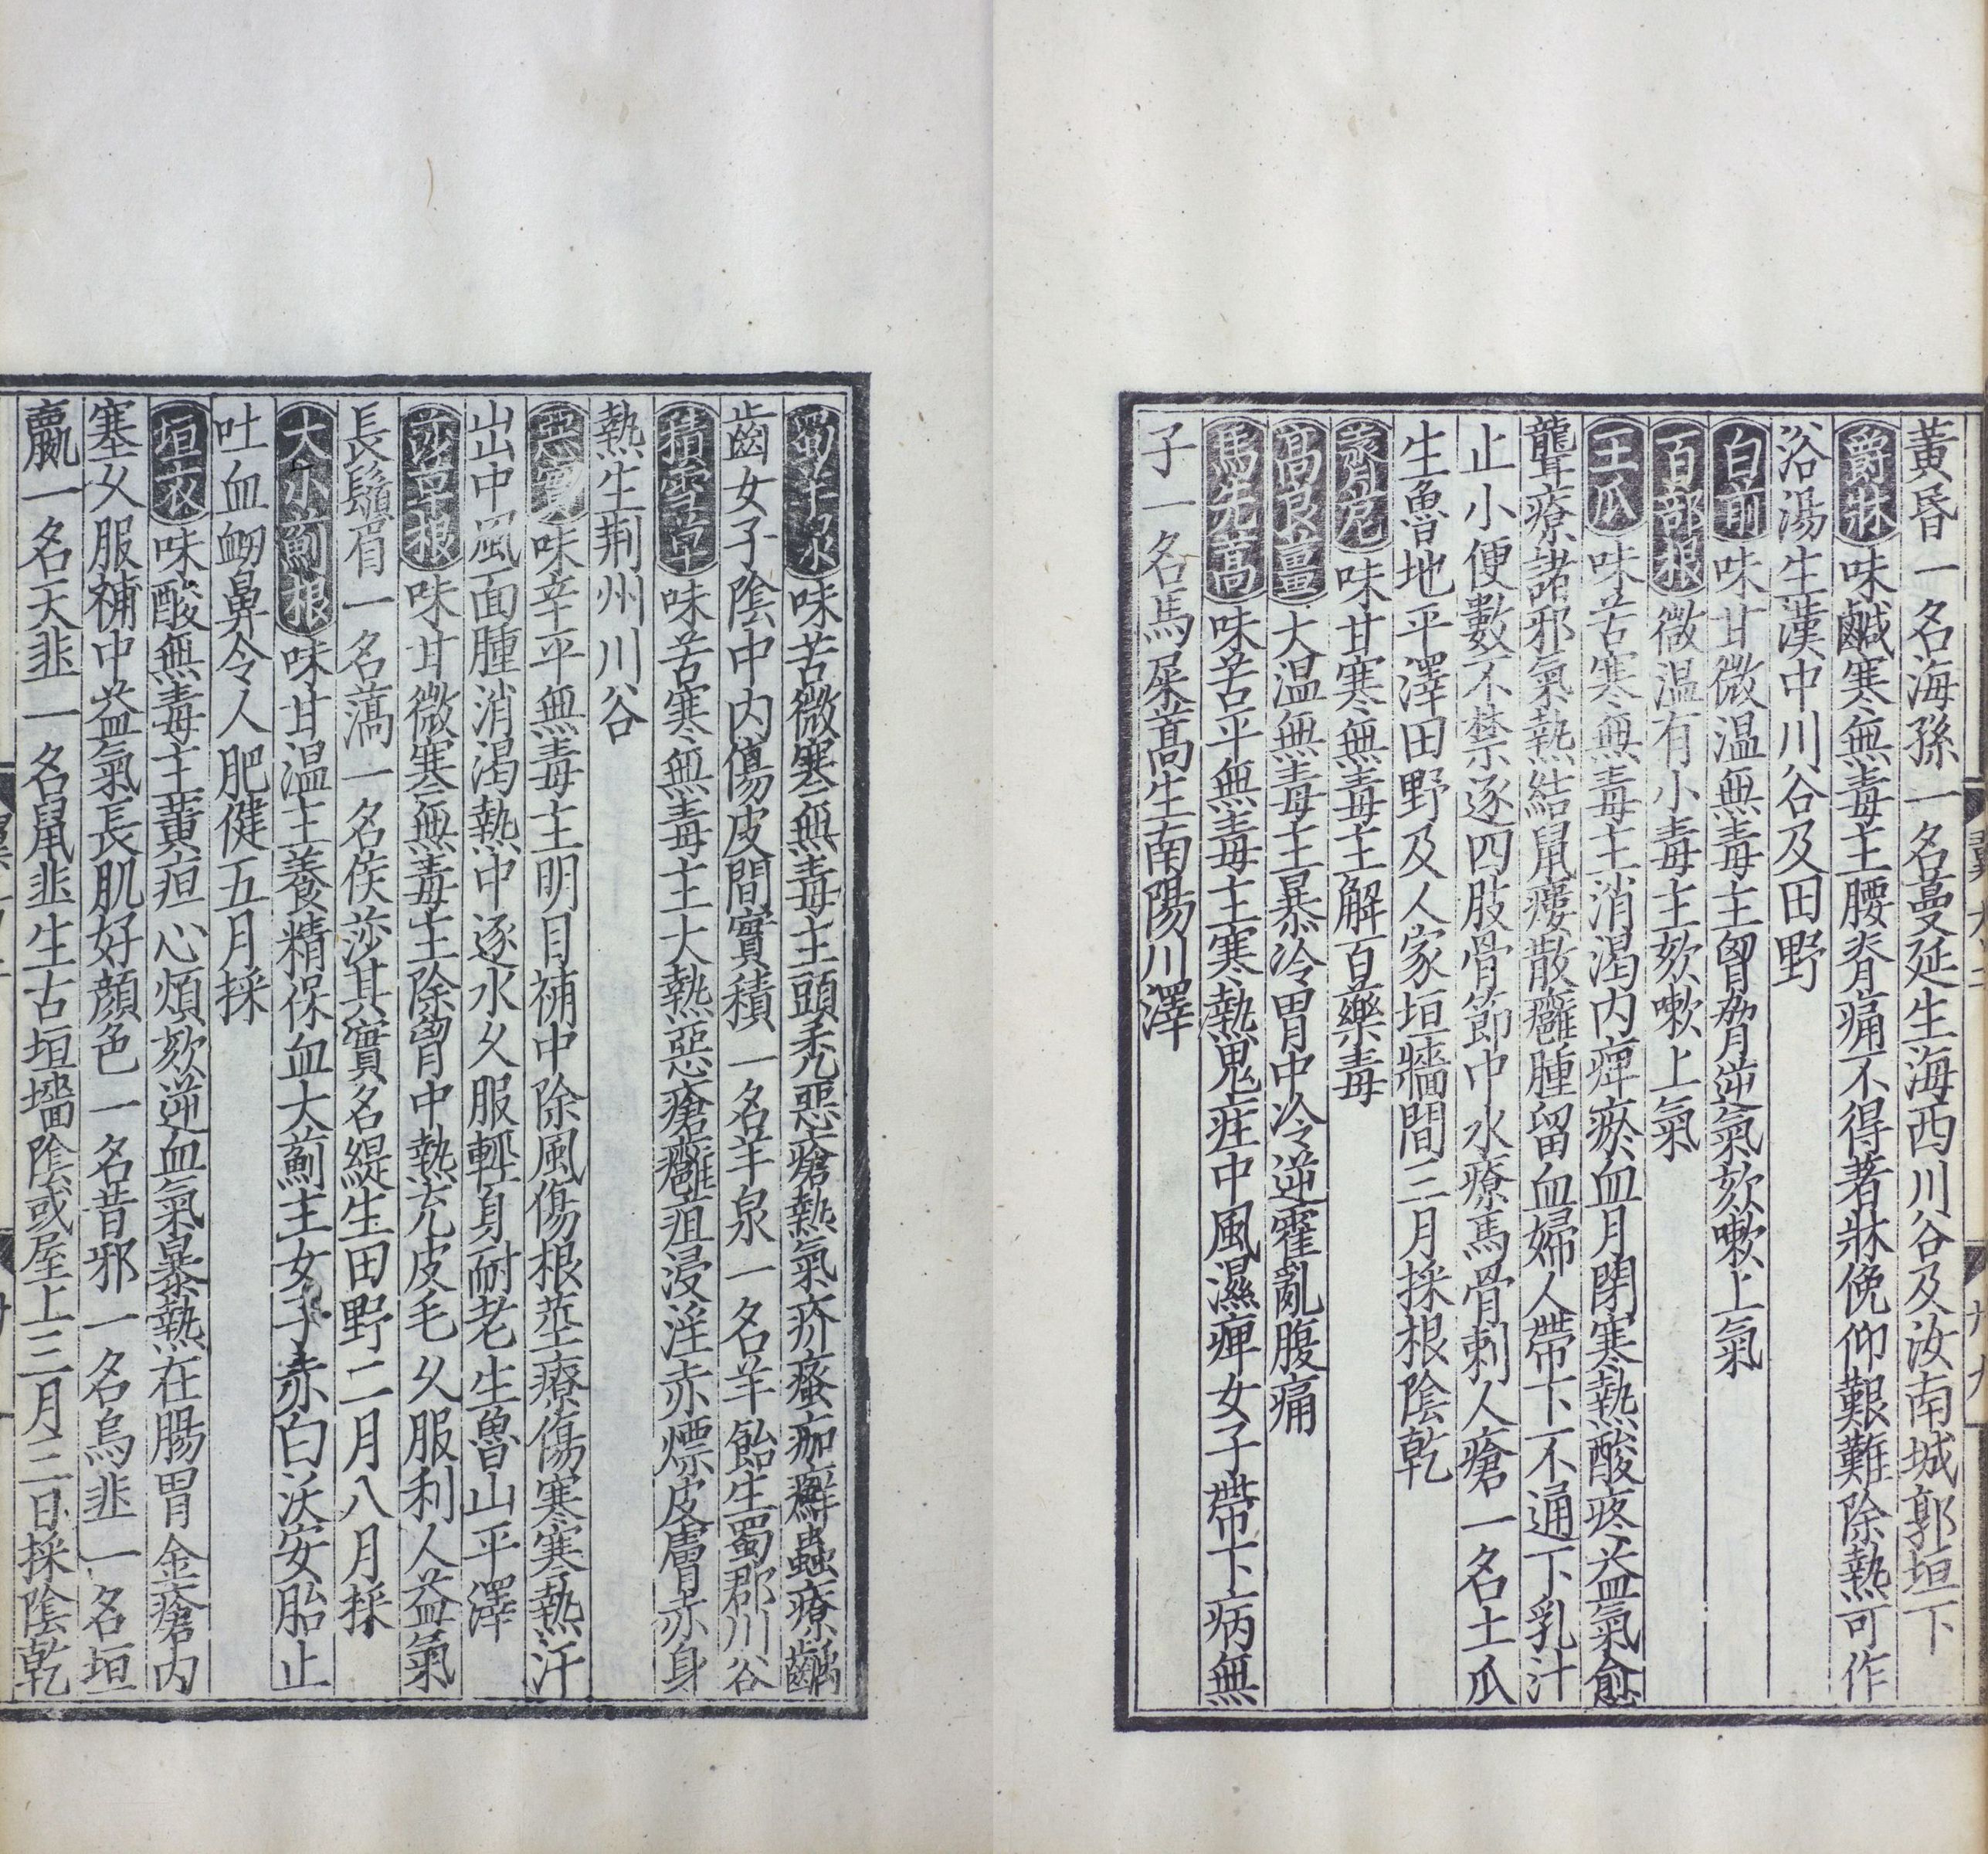 黃昏一名海孫一名蔓延生海西川谷及汝南城郭垣下
爵牀味鹹寒無毒主腰脊痛不得著牀俛仰艱難除熱可作
浴湯生漢中川谷及田野
白前味甘微温無毒主胷脅逆氣欬嗽上氣
百部根微温有小毒主欬嗽上氣
王瓜味苦寒無毒主消渴内痺瘀血月閉寒熱酸疼益氣愈
聾療諸邪氣熱結鼠瘻散癰腫留血婦人帶下不通下乳汁
止小便數不禁逐四肢骨節中水療馬骨刺人瘡一名土瓜
生魯地平澤田野及人家垣牆間三月採根陰乾
薺苨味甘寒無毒主解百藥毒
髙良薑大温無毒主暴冷胃中冷逆霍亂腹痛
馬先蒿味苦平無毒主寒熱鬼疰中風濕痺女子帶下病無
子一名馬屎蒿生南陽川澤
蜀羊泉味苦微寒無毒主頭禿惡瘡熱氣疥瘙痂癬蟲療齲
齒女子陰中内傷皮間實積一名羊泉一名羊飴生蜀郡川谷
積雪草味苦寒無毒主大熱惡瘡癰疽浸淫赤熛皮膚赤身
熱生荆州川谷
惡實味辛平無毒主明目補中除風傷根莖療傷寒寒熱汗
出中風面腫消渴熱中逐水久服輕身耐老生魯山平澤
莎草根味甘微寒無毒主除胷中熱充皮毛久服利人益氣
長鬚眉一名薃一名侯莎其實名緹生田野二月八月採
大小薊根味甘温主養精保血大薊主女子赤白沃安胎止
吐血衂鼻令人肥健五月採
垣衣味酸無毒主黃疸心煩欬逆血氣暴熱在腸胃金瘡内
塞久服補中益氣長肌好顔色一名昔邪一名烏韭一名垣
嬴一名天韭一名鼠韭生古垣墻陰或屋上三月三日採陰乾